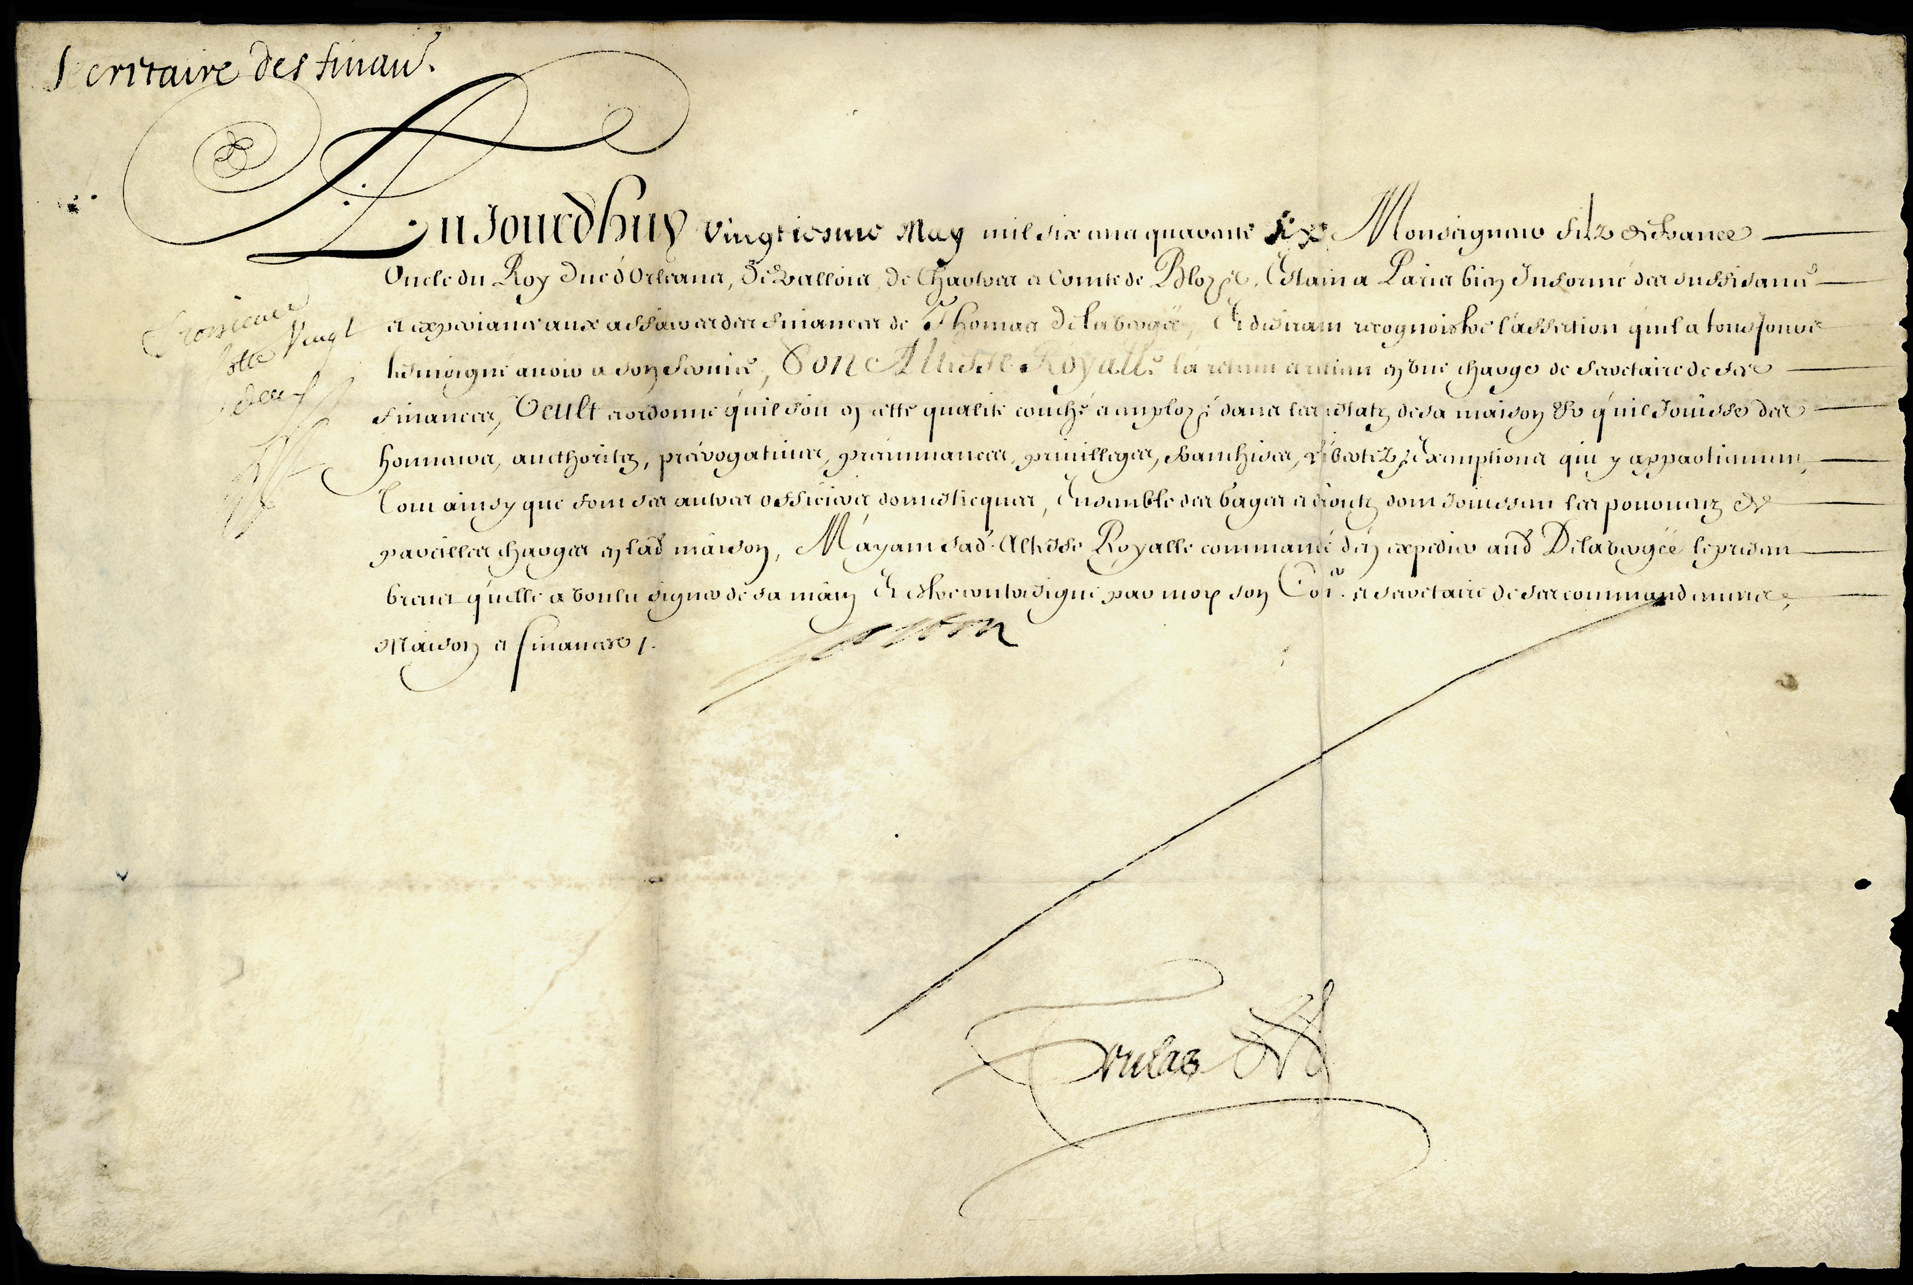 Secritaire des finan.
Aujourdhuy vingtiesme May mil six cens quarante six Monseigneur filz de france
Oncle du Roy Duc d'Orleans, De Vallois, de Chartres et Comte de Bloys, Estant a Paris bien Informé des suffisance
et experiance aux affaires des finances de Thomas Delabergée, Et desirant recognoistre l'affection qu'il a tousjours
tesmoigné avoir a son service, Son Altesse Royalle la retenu et retient en une charge de secretaire de ses
finances, Veult et ordonne qu'il soit en cette qualité couché et employé dans les estatz de sa maison Et qu'il Jouisse des
honneurs, aucthoritez, prérogatives, préeminances, privilleges, franchises, libertez, Exemptions qui y appartiennent,
Tout ainsy que font ses autres officiers domesticques, Ensemble des gages et droits dont Jouissent les pourveuz de
pareilles charges en lad maison, M'ayant sad. Altesse Royalle commandé d'en expedier aud Delabergée le present
brevet qu'elle a voulu signer de sa main Et estre contresigné par moy son Con.er et secretaire de ses commandemens,
Maison et finances /.
Gaston
Troisieme
cotte Vingt
deux
Goulas